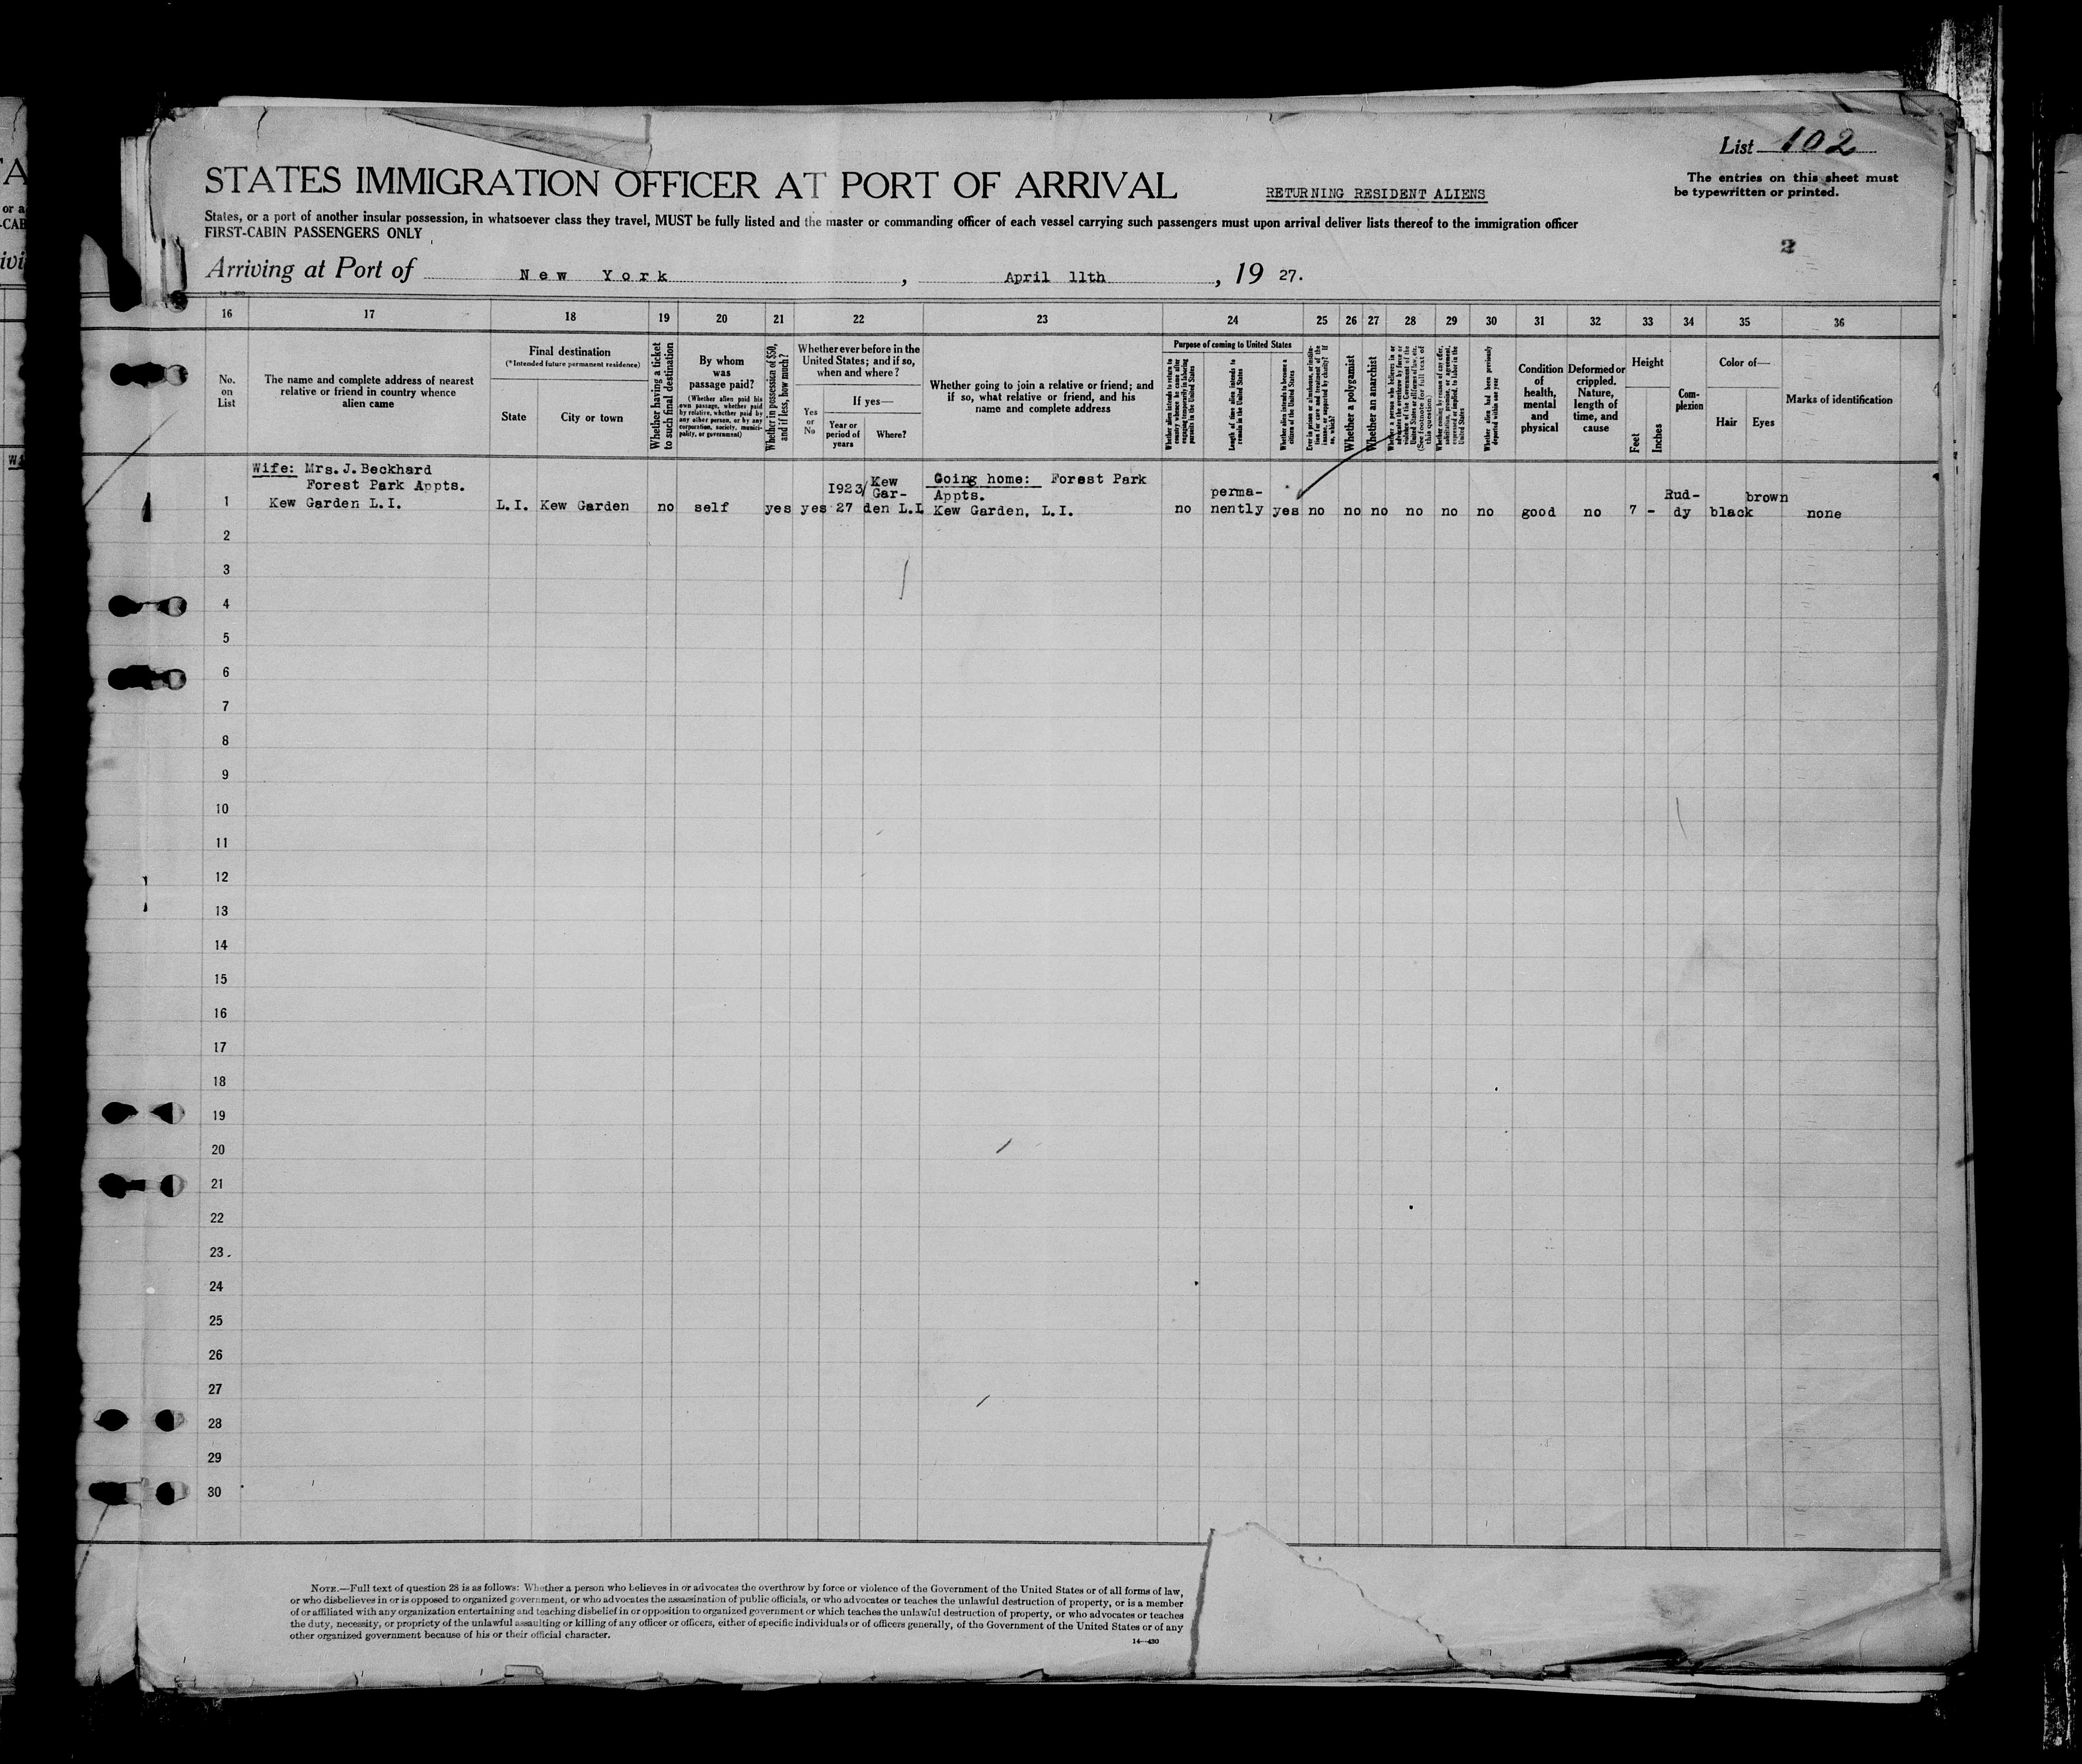 List 102
STATES IMMIGRATION OFFICER AT PORT OF ARRIVAL
RETURNING RESIDENT ALIENS
The entries on this sheet must
be typewritten or printed.
States, or a port of another insular possession, in whatsoever class they travel, MUST be fully listed and the master or commanding officer of each vessel carrying such passengers must upon arrival deliver lists thereof to the immigration officer
FIRST-CABIN PASSENGERS ONLY
2
Arriving at Port of New York, April 11th, 19 27.
16 17 18 19 20 21 22 23 24 25 26 27 28 29 30 31 32 33 34 35 36
No.
on
List
The name and complete address of nearest
relative or friend in country whence
alien came
Final destination
(*Intended future permanent residence)
State
City or town
Whether having a ticket
to such final destination
By whom
was
passage paid?
(Whether alien paid his
own passage, whether paid
by relative, whether paid by
any other person, or by any
corporation, society, munici-
pality, or government)
Whether in possession of $50,
and if less, how much?
Whether ever before in the
United States; and if so,
when and where?
Yes
or
No
If yes—
Year or
period of
years
Where?
Whether going to join a relative or friend; and
if so, what relative or friend, and his
name and complete address
Purpose of coming to United States
Whether alien intends to return to
country whence he came after
engaging temporarily in laboring
pursuits in the United States
Length of time alien intends to
remain in the United States
Whether alien intends to become a
citizen of the United States
Ever in prison or almshouse, or institu-
tion for care and treatment of the
insane, or supported by charity? If
so, which?
Whether a polygamist
Whether an anarchist
Whether a person who believes in or
advocates the overthrow by force or
violence of the Government of the
United States or all forms of law, etc.
(See footnote for full text of
this question)
Whether coming by reason of any offer,
solicitation, promise, or agreement,
expressed or implied, to labor in the
United States
Whether alien had been previously
deported within one year
Condition
of
health,
mental
and
physical
Deformed or
crippled.
Nature,
length of
time, and
cause
Height
Feet
Inches
Com-
plexion
Color of—
Hair
Eyes
Marks of identification
Wife: Mrs. J. Beckhard
Forest Park Appts.
1 Kew Garden L.I. L.I. Kew Garden no self yes yes
1923/
27
Kew
Gar-
den L.I
Going home: Forest Park
Appts.
Kew Garden, L.I.
no
perma-
nently
yes no no no no no no good no 7 -
Rud-
dy
black
brown
none
2
3
4
5
6
7
8
9
10
11
12
13
14
15
16
17
18
19
20
21
22
23
24
25
26
27
28
29
30
NOTE.—Full text of question 28 is as follows: Whether a person who believes in or advocates the overthrow by force or violence of the Government of the United States or of all forms of law,
or who disbelieves in or is opposed to organized government, or who advocates the assassination of public officials, or who advocates or teaches the unlawful destruction of property, or is a member
of or affiliated with any organization entertaining and teaching disbelief in or opposition to organized government or which teaches the unlawful destruction of property, or who advocates or teaches
the duty, necessity, or propriety of the unlawful assaulting or killing of any officer or officers, either of specific individuals or of officers generally, of the Government of the United States or of any
other organized government because of his or their official character.
14—430